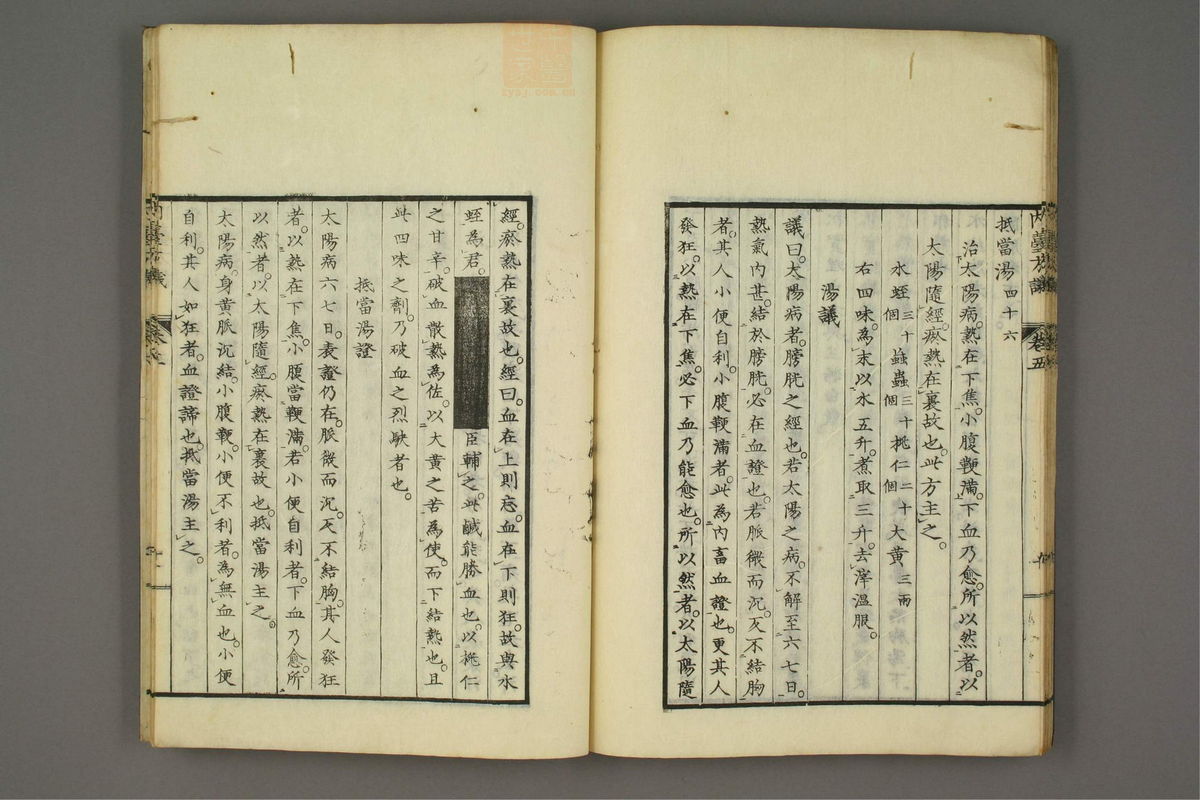 抵當湯四十六
治太陽病。熱在下焦。小腹鞕滿。下血乃愈。所以然者。以
太陽隨經。瘀熱在裏故也。此方主之。
水蛭三十個 蝱蟲三十個 桃仁二十個 大黄三兩
右四味。為末。以水五升。煮取三升。去滓溫服。
湯議
議曰。太陽病者。膀胱之經也。若太陽之病。不解至六七日。
熱氣内甚。結於膀胱。必在血證也。若脈微而沉。反不結胸
者。其人小便自利。小腹鞕滿者。此為内畜血證也。更其人
發狂。以熱在下焦。必下血乃能愈也。所以然者。以太陽隨
經。瘀熱在裏故也。經曰。血在上則忘。血在下則狂。故與水
蛭為君。臣輔之。此鹹能勝血也。以桃仁
之甘辛。破血散熱為佐。以大黄之苦為使。而下結熱也。且
此四味之劑。乃破血之烈駃者也。
抵當湯證
太陽病六七日。表證仍在。脈微而沉。反不結胸。其人發狂
者。以熱在下焦。小腹當鞕滿。若小便自利者。下血乃愈。所
以然者。以太陽隨經。瘀熱在裏故也。抵當湯主之。
太陽病。身黄脈沉結。小腹鞕。小便不利者。為無血也。小便
自利。其人如狂者。血證諦也。抵當湯主之。
内臺方議
卷五